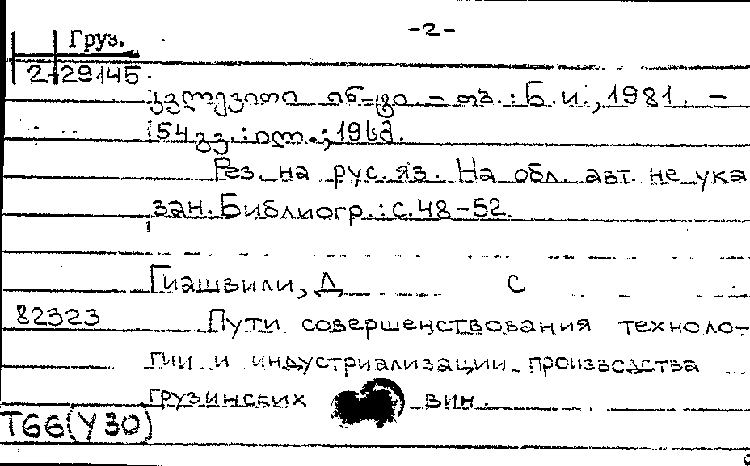 -2-
Груз.
2-29145
კვლევითი ინ-ტი. - თბ.: Б.и., 1981. -
54 გვ.: ილ.; 19სმ.
Рез. на рус. яз. На обл. авт. не ука
зан. Библиогр.: с. 48-52.
Гиашвили, Д С
82323 Пути совершенствования техноло-
гии и индустриализации производства
грузинских вин.
Т66(У30)